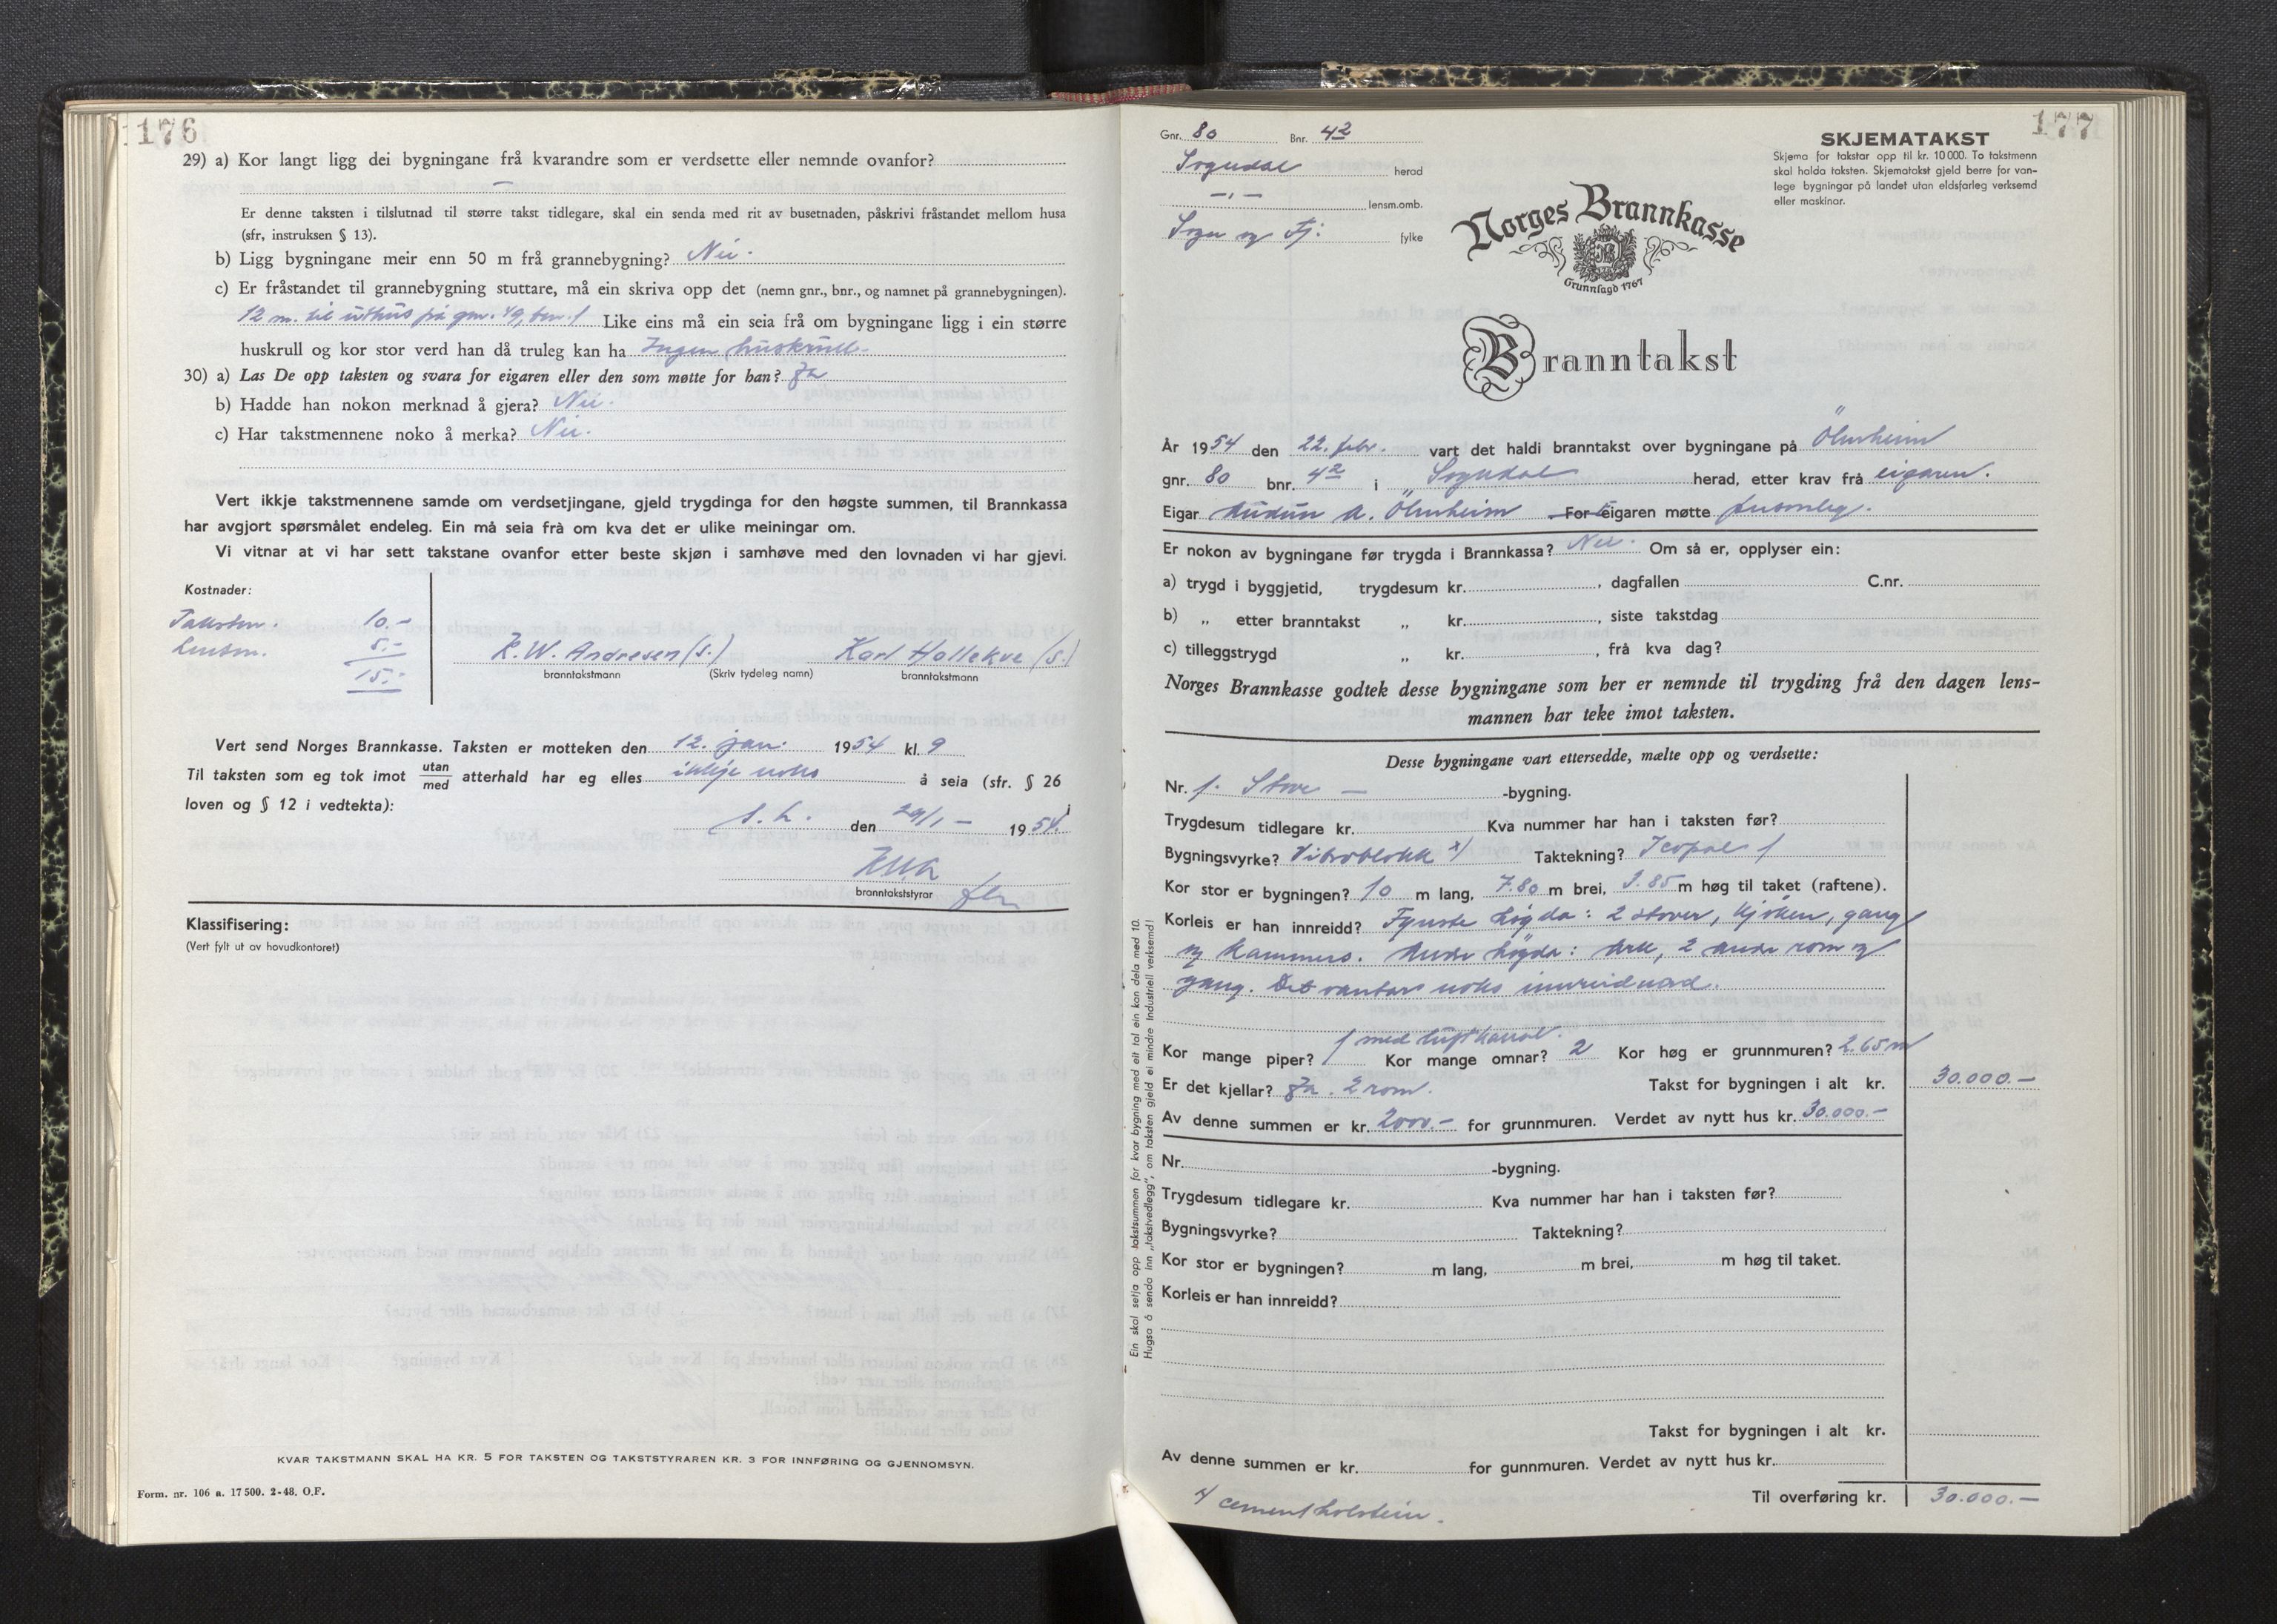 176
29) a) Kor langt ligg dei bygningane frå kvarandre som er verdsette eller nemnde ovanfor?
—
Er denne taksten i tilslutnad til større takst tidlegare, skal ein senda med rit av busetnaden, påskrivi fråstandet mellom husa
(sfr, instruksen § 13).
b) Ligg bygningane meir enn 50 m frå grannebygning? Nei.
c) Er fråstandet til grannebygning stuttare, må ein skriva opp det (nemn gnr., bnr., og namnet på grannebygningen).
12 m. til uthus på gnr. 49, bnr. 1 Like eins må ein seia frå om bygningane ligg i ein større
huskrull og kor stor verd han då truleg kan ha Ingen huskrull.
30) a) Las De opp taksten og svara for eigaren eller den som møtte for han? Ja
b) Hadde han nokon merknad å gjera? Nei.
c) Har takstmennene noko å merka? Nei.
Vert ikkje takstmennene samde om verdsetjingane, gjeld trygdinga for den høgste summen, til Brannkassa
har avgjort spørsmålet endeleg. Ein må seia frå om kva det er ulike meiningar om.
Vi vitnar at vi har sett takstane ovanfor etter beste skjøn i samhøve med den lovnaden vi har gjevi.
Kostnader:
Takstm. 10.-
Lensm. 5.-
15.-
K. W. Andresen (s.) Karl Hollekve (s.)
branntakstmann (Skriv tydeleg namn) branntakstmann
Vert send Norges Brannkasse. Taksten er motteken den 12. jan. 1954 kl. 9
Til taksten som eg tok imot utan/med atterhald har eg elles ikkje noko å seia (sfr. § 26
loven og § 12 i vedtekta):
S. L. den 29/1 - 1954.
branntakststyrar
Klassifisering:
(Vert fylt ut av hovudkontoret)
KVAR TAKSTMANN SKAL HA KR. 5 FOR TAKSTEN OG TAKSTSTYRAREN KR. 3 FOR INNFØRING OG GJENNOMSYN.
Form. nr. 106 a. 17 500. 2-48. O.F.
177
Gnr. 80 Bnr. 42
Sogndal herad
— „ — lensm.omb.
Sogn og Fj. fylke
SKJEMATAKST
Skjema for takstar opp til kr. 10 000. To takstmenn
skal halda taksten. Skjematakst gjeld berre for van-
lege bygningar på landet utan eldsfarleg verksemd
eller maskinar.
Norges Brannkasse
Grunnlagd 1767
Branntakst
År 1954 den 22. febr. vart det haldi branntakst over bygningane på Ölmheim
gnr. 80 bnr. 42 i Sogndal herad, etter krav frå eigaren.
Eigar Audun A. Ölmheim For Eigaren møtte personleg.
Er nokon av bygningane før trygda i Brannkassa? Nei. Om så er, opplyser ein:
a) trygd i byggjetid, trygdesum kr. , dagfallen C.nr.
b) „ etter branntakst „ kr. , siste takstdag
c) tilleggstrygd „ kr. , frå kva dag?
Norges Brannkasse godtek desse bygningane som her er nemnde til trygding frå den dagen lens-
mannen har teke imot taksten.
Desse bygningane vart ettersedde, mælte opp og verdsette:
Nr. 1. Stove — -bygning.
Trygdesum tidlegare kr. Kva nummer har han i taksten før?
Bygningsvyrke? Vibroblokk x) Taktekning? Icopal
Kor stor er bygningen? 10 m lang, 7.80 m brei, 3.85 m høg til taket (raftene).
Korleis er han innreidd? Fyrste högda: 2 stover, kjöken, gang
og kammers. Andre högda: Ark, 2 andre rom og
gang. Det vantar noko innreidnad.
Kor mange piper? 1 med luftkanal. Kor mange omnar? 2 Kor høg er grunnmuren? 2.65 m
Er det kjellar? Ja. 2 rom. Takst for bygningen i alt kr. 30.000.—
Av denne summen er kr. 2000.— for grunnmuren. Verdet av nytt hus kr. 30.000.—
Nr. -bygning.
Trygdesum tidlegare kr. Kva nummer har han i taksten før?
Bygningsvyrke? Taktekning?
Kor stor er bygningen? m lang, m brei, m høg til taket.
Korleis er han innreidd?
Takst for bygningen i alt kr.
Av denne summen er kr. for gunnmuren. Verdet av nytt hus kr.
Til overføring kr. 30.000.—
x) cement holstein.
Ein skal setja opp takstsummen for kvar bygning med eit tal ein kan dela med 10.
Hugsa å senda inn „takstvedlegg", om taksten gjeld ei mindre industriell verksemd!